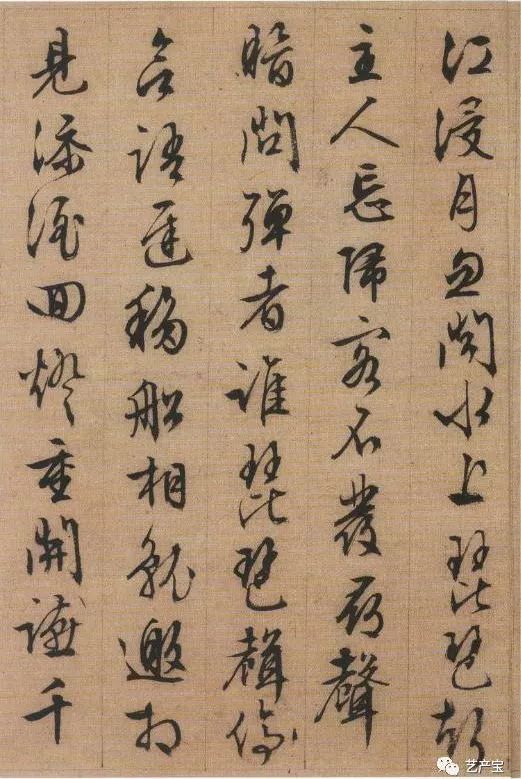 江浸月忽聞水上琵琶聲
主人忘歸客不發尋聲
暗問彈者誰琵琶聲停
欲語遲移船相就邀相
見添酒回燈重開讌千
艺产宝